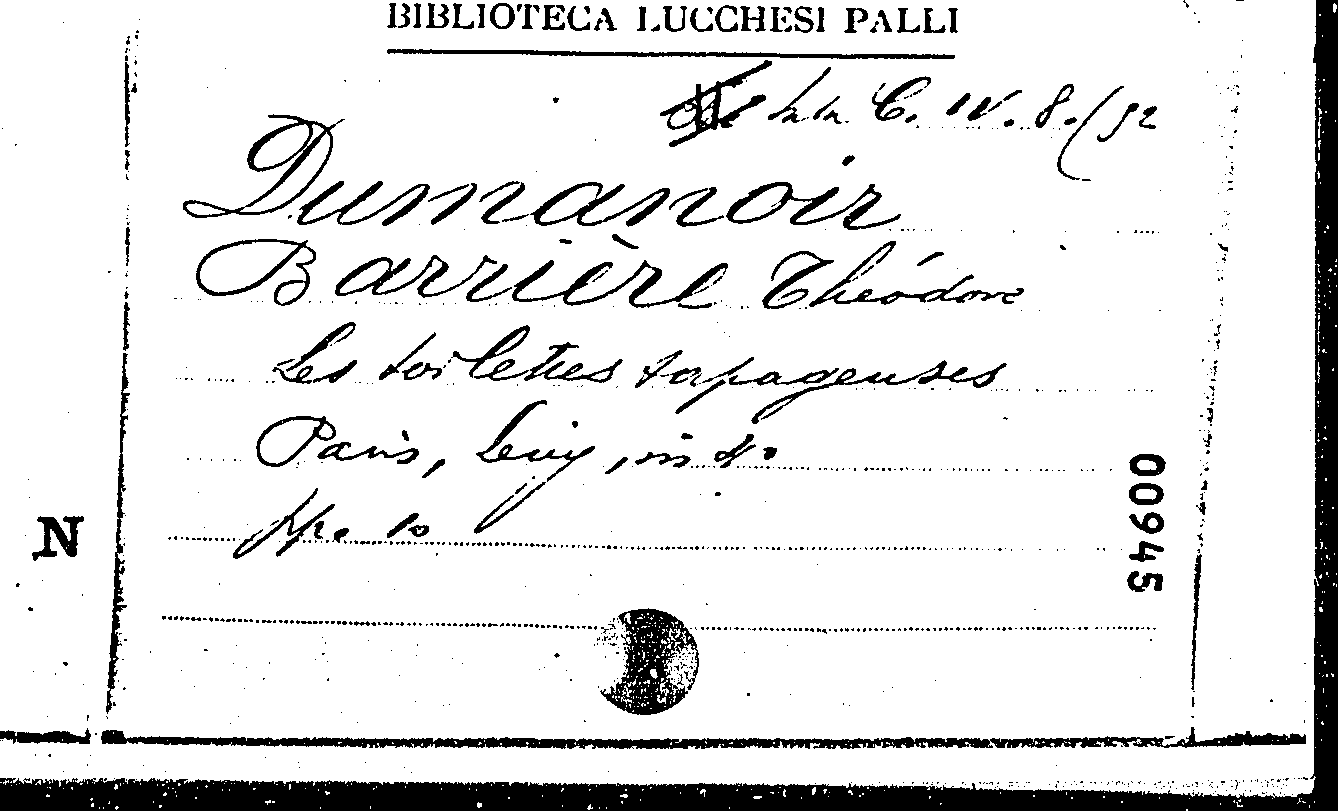 BIBLIOTECA LUCCHESI PALLI
Sala C. IV. 8./52
Dumanoir
Barrière Théodore
Les toilettes tapageuses
Paris, Levy, in 4°
pp. 10
N
00945